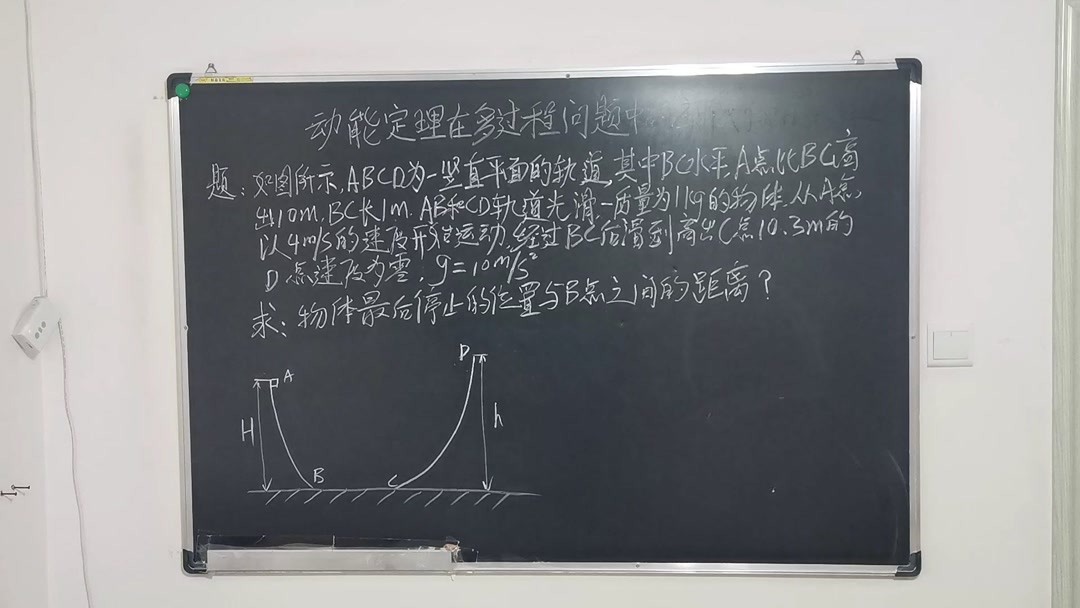 动能定理在多过程问题中
题:如图所示,ABCD为一竖直平面的轨道,其中BC水平,A点比BC高
出10m,BC长1m,AB和CD轨道光滑.一质量为1kg的物体,从A点
以4m/s的速度开始运动,经过BC后滑到高出C点10.3m的
D点速度为零.g=10m/s²
求:物体最后停止的位置与B点之间的距离?
A
D
H
h
B
C